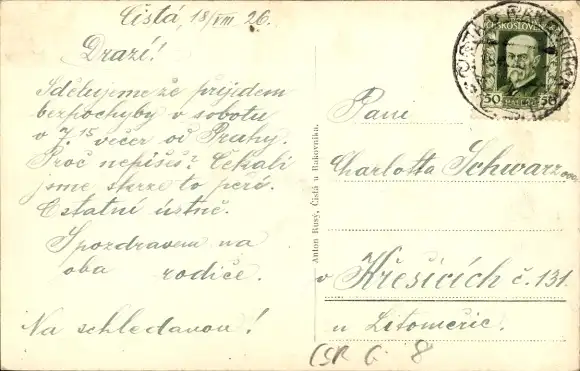 Čistá, 18/VIII 26.
Drazí!
Sdělujeme že přijedem
bezpochyby v sobotu
v 7.15 večer od Prahy.
Proč nepíšíš? Čekali
jsme to péří.
Ostatní ústně.
S pozdravem na
oba rodiče.
Na schledanou!
Anton Rusý, Čistá u Rakovníka.
ČESKOSLOVEN
50 HALÉŘŮ 50
Paní
Charlotta Schwarzová
v Křešicích č. 131.
u Litoměřic.
ČSR G 8